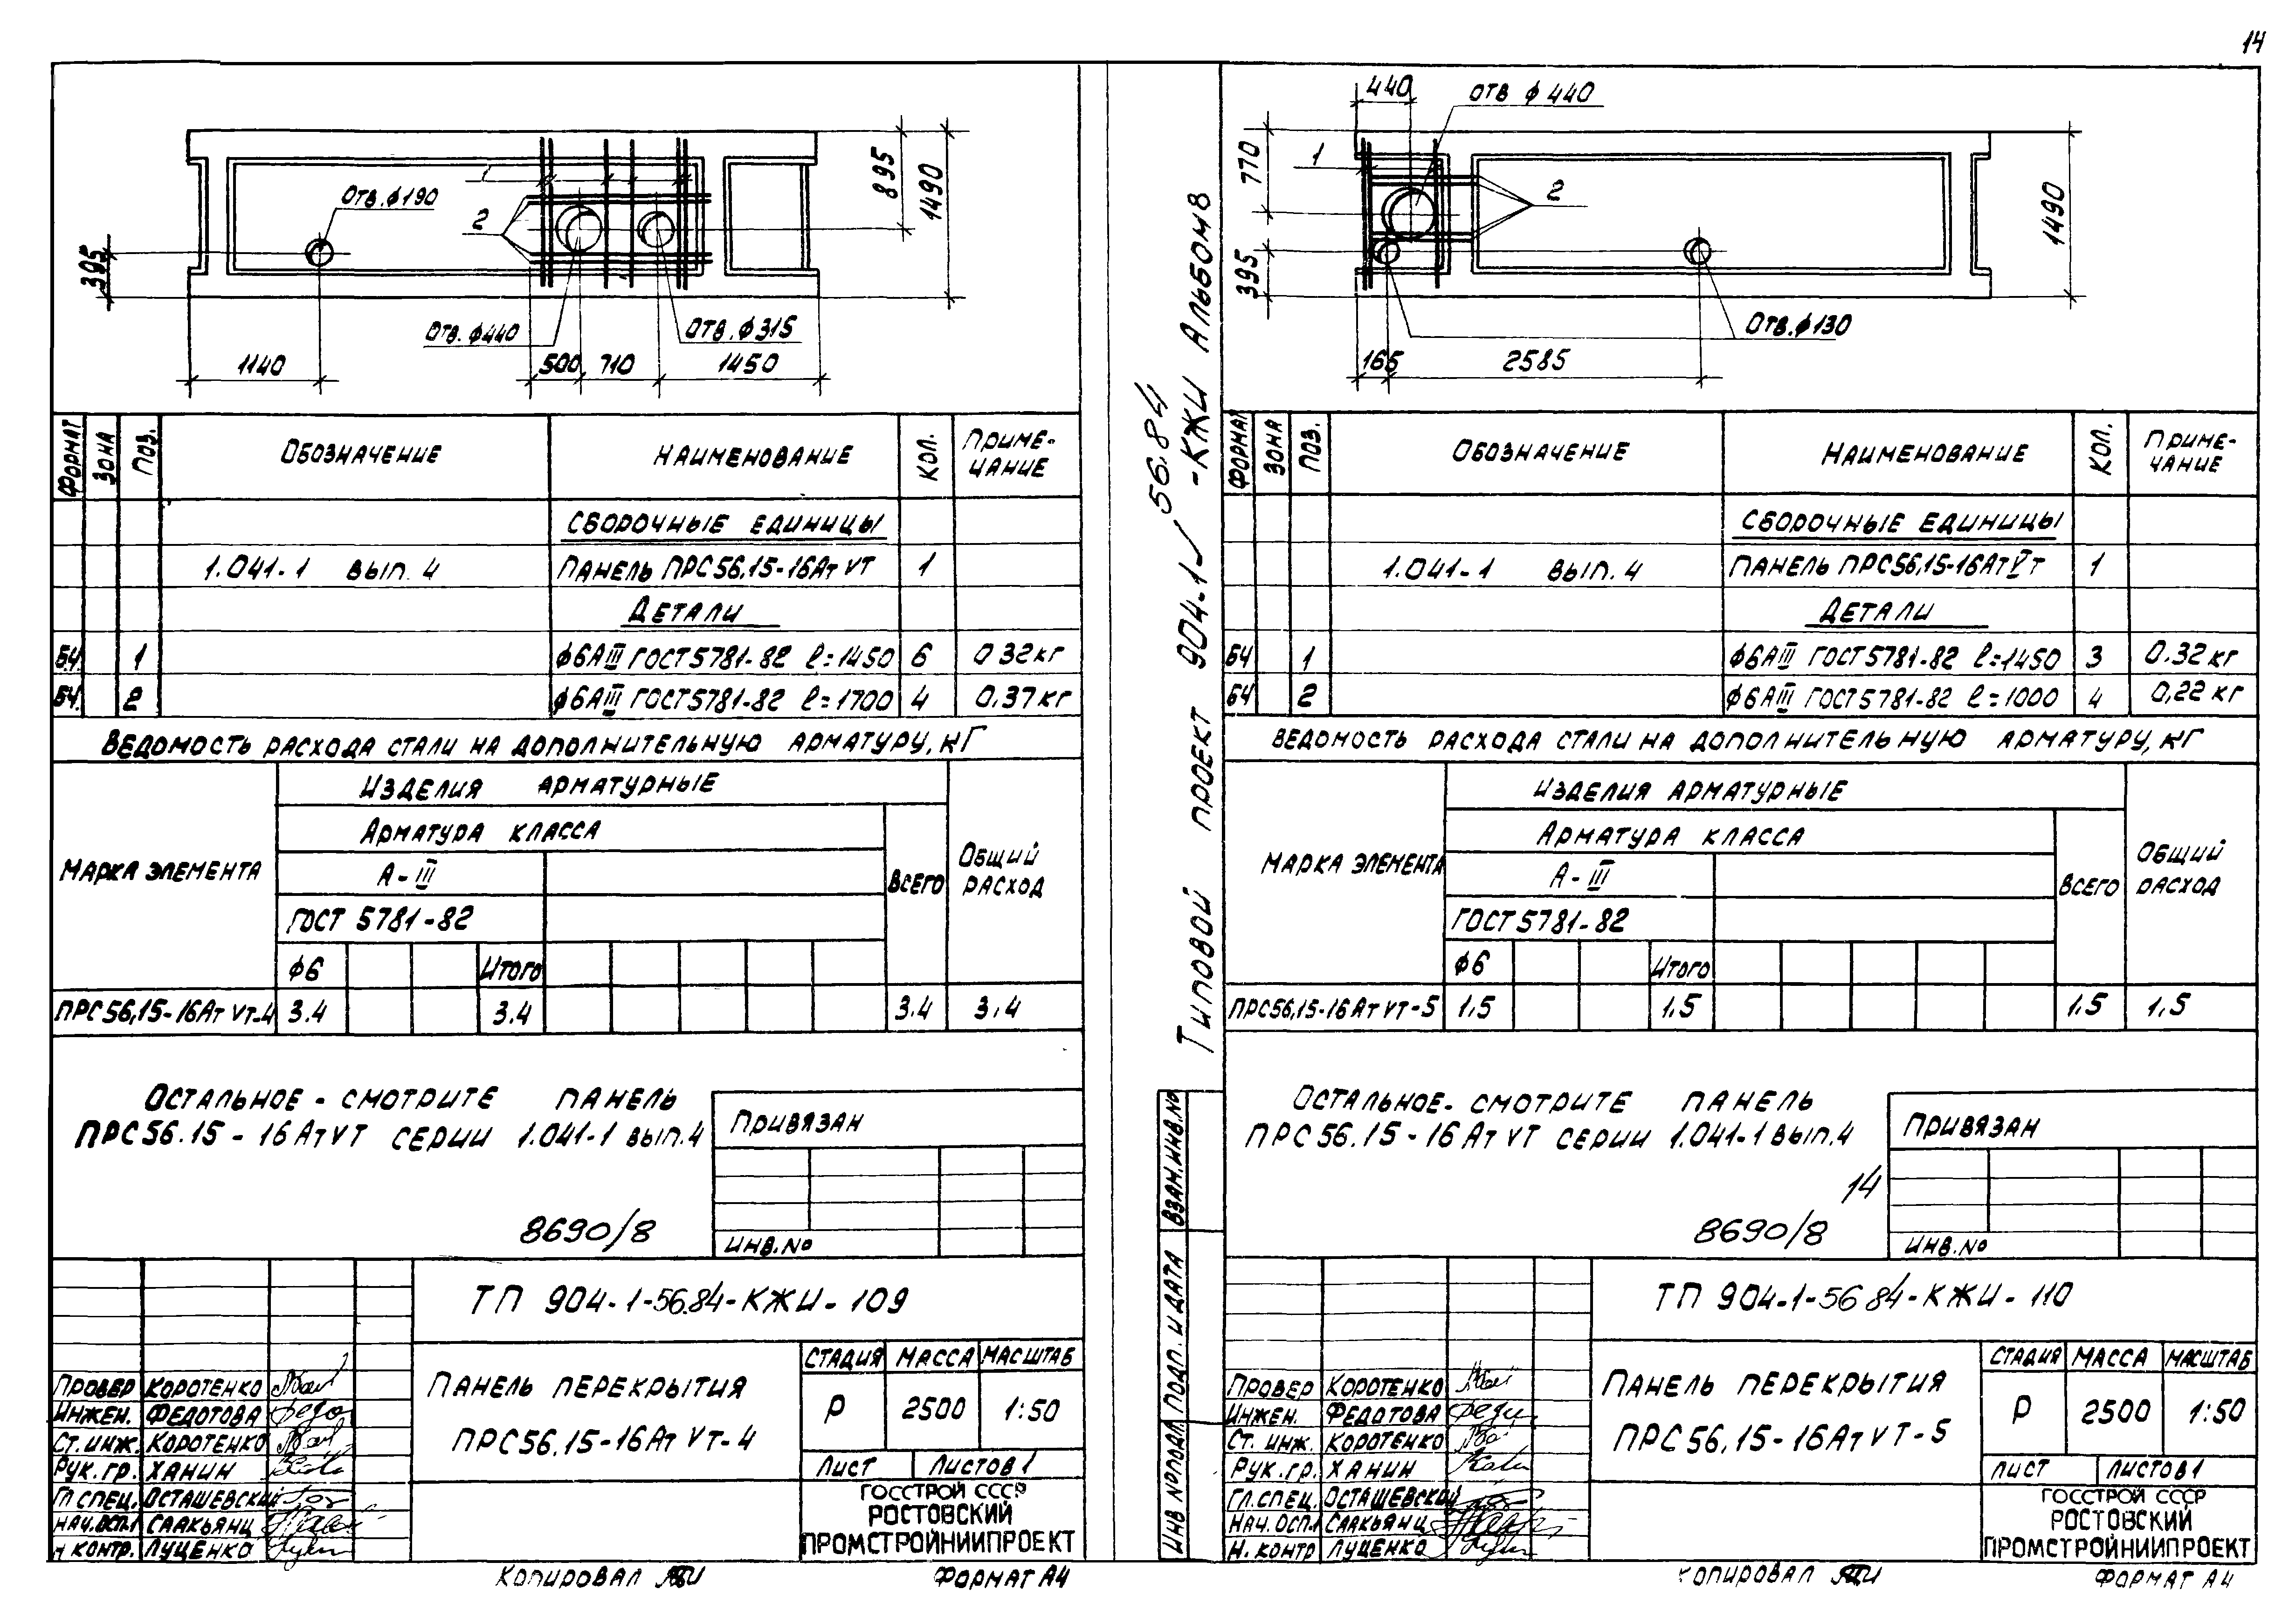 14
1
Отв. ф190
2
895
1490
395
Отв. ф440
Отв. ф315
1140
500
710
1450
ФОРМАТ
ЗОНА
ПОЗ.
ОБОЗНАЧЕНИЕ
НАИМЕНОВАНИЕ
КОЛ.
ПРИМЕ-
ЧАНИЕ
СБОРОЧНЫЕ ЕДИНИЦЫ
1.041-1 ВЫП. 4 ПАНЕЛЬ ПРС56,15-16Ат VТ 1
ДЕТАЛИ
БЧ. 1 ф6АIII ГОСТ5781-82 ℓ=1450 6 0 32кг
БЧ. 2 ф6АIII ГОСТ5781-82 ℓ=1700 4 0,37кг
ВЕДОМОСТЬ РАСХОДА СТАЛИ НА ДОПОЛНИТЕЛЬНУЮ АРМАТУРУ, КГ
МАРКА ЭЛЕМЕНТА
ИЗДЕЛИЯ АРМАТУРНЫЕ
АРМАТУРА КЛАССА
А-III
ГОСТ 5781-82
ф6
Итого
ВСЕГО
ОБЩИЙ
РАСХОД
ПРС56,15-16Ат VТ-4 3.4 3.4 3.4 3,4
ОСТАЛЬНОЕ - СМОТРИТЕ ПАНЕЛЬ
ПРС56.15-16АтVТ СЕРИИ 1.041-1 ВЫП.4
8690/8
ПРИВЯЗАН
ИНВ.№
ТП 904-1-56.84-КЖИ-109
ПАНЕЛЬ ПЕРЕКРЫТИЯ
ПРС56,15-16Ат VТ-4
СТАДИЯ МАССА МАСШТАБ
Р 2500 1:50
ЛИСТ ЛИСТОВ 1
ГОССТРОЙ СССР
РОСТОВСКИЙ
ПРОМСТРОЙНИИПРОЕКТ
ПРОВЕР КОРОТЕНКО
ИНЖЕН. ФЕДОТОВА
СТ. ИНЖ. КОРОТЕНКО
РУК. ГР. ХАНИН
ГЛ СПЕЦ. ОСТАШЕВСКИЙ
НАЧ. ОСП.1 СААКЬЯНЦ
Н КОНТР. ЛУЦЕНКО
КОПИРОВАЛ
ФОРМАТ А4
ТИПОВОЙ ПРОЕКТ 904-1- 56.84 -КЖИ АЛЬБОМ 8
ВЗАМ.ИНВ.№
ПОДП. И ДАТА
ИНВ №ПОДЛ
440
отв ф440
770
1
2
1490
395
Отв. ф130
165
2585
ФОРМАТ
ЗОНА
ПОЗ.
ОБОЗНАЧЕНИЕ
НАИМЕНОВАНИЕ
КОЛ.
ПРИМЕ-
ЧАНИЕ
СБОРОЧНЫЕ ЕДИНИЦЫ
1.041-1 ВЫП. 4 ПАНЕЛЬ ПРС56,15-16АтVт 1
ДЕТАЛИ
БЧ 1 ф6АIII ГОСТ5781-82 ℓ=1450 3 0.32кг
БЧ 2 ф6АIII ГОСТ5781-82 ℓ=1000 4 0,22кг
ВЕДОМОСТЬ РАСХОДА СТАЛИ НА ДОПОЛНИТЕЛЬНУЮ АРМАТУРУ, КГ
МАРКА ЭЛЕМЕНТА
ИЗДЕЛИЯ АРМАТУРНЫЕ
АРМАТУРА КЛАССА
А-III
ГОСТ5781-82
ф6
Итого
ВСЕГО
ОБЩИЙ
РАСХОД
ПРС56,15-16АтVТ-5 1,5 1,5 1.5 1,5
ОСТАЛЬНОЕ- СМОТРИТЕ ПАНЕЛЬ
ПРС56.15-16АтVТ СЕРИИ 1.041-1 ВЫП.4
14
8690/8
ПРИВЯЗАН
ИНВ.№
ТП 904-1-56 84-КЖИ-110
ПАНЕЛЬ ПЕРЕКРЫТИЯ
ПРС56,15-16АтVТ-5
СТАДИЯ МАССА МАСШТАБ
Р 2500 1:50
ЛИСТ ЛИСТОВ 1
ГОССТРОЙ СССР
РОСТОВСКИЙ
ПРОМСТРОЙНИИПРОЕКТ
ПРОВЕР КОРОТЕНКО
ИНЖЕН. ФЕДОТОВА
СТ. ИНЖ. КОРОТЕНКО
РУК. ГР. ХАНИН
ГЛ. СПЕЦ. ОСТАШЕВСКИЙ
НАЧ. ОСП.1 СААКЬЯНЦ
Н. КОНТР ЛУЦЕНКО
КОПИРОВАЛ
ФОРМАТ А4